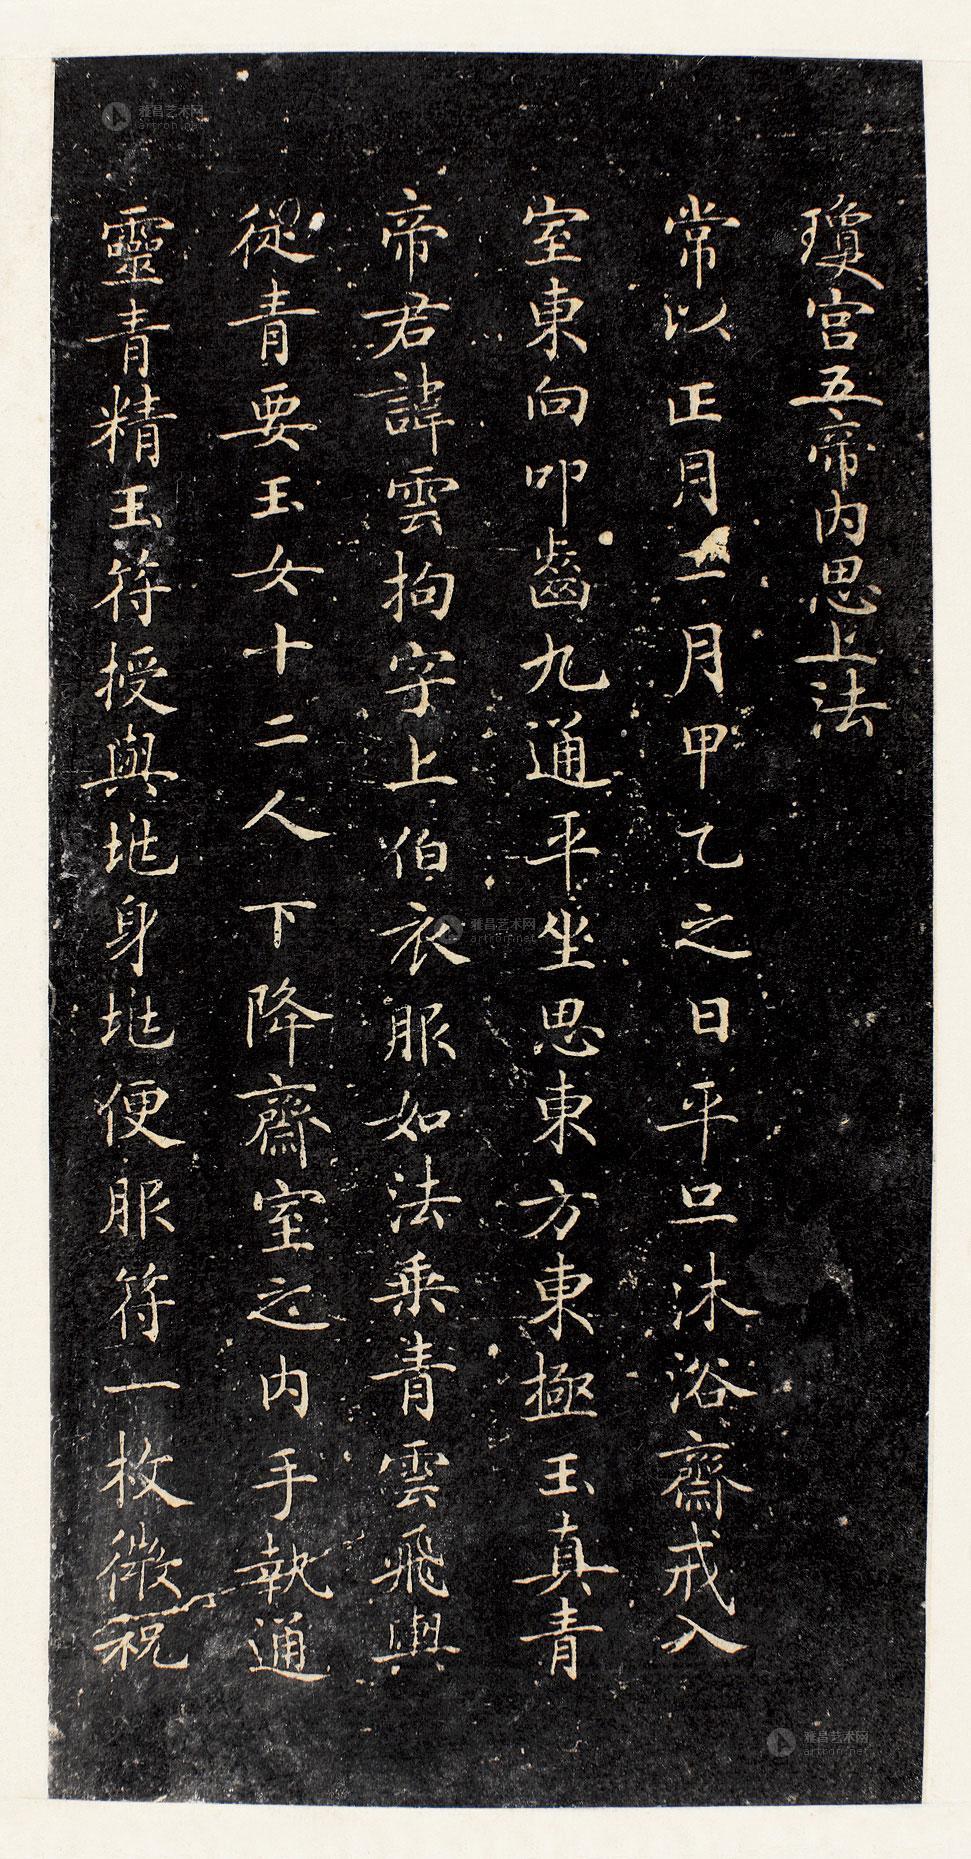 瓊宮五帝內思上法
常以正月二月甲乙之日平旦沐浴齋戒入
室東向叩齒九通平坐思東方東極玉真青
帝君諱雲拘字上伯衣服如法乘青雲飛輿
從青要玉女十二人下降齋室之內手執通
靈青精玉符授與兆身兆便服符一枚微祝
雅昌艺术网
artron.net
雅昌艺术网
artron.net
雅昌艺术网
artron.net